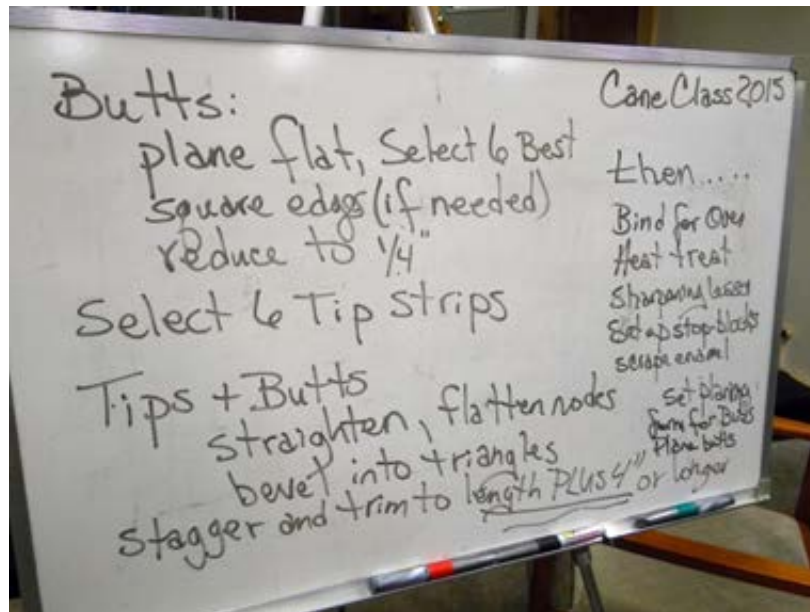 Butts:
plane flat, Select 6 Best
square edges (if needed)
reduce to 1/4"
Select 6 Tip Strips
Tips + Butts
straighten, flatten nodes
bevel into triangles
stagger and trim to length PLUS 4" or longer
Cane Class 2015
then.....
Bind for Oven
Heat treat
Sharpening lesson
Set up stop-blocks
scrape enamel
set planing
form for Butts
Plane butts